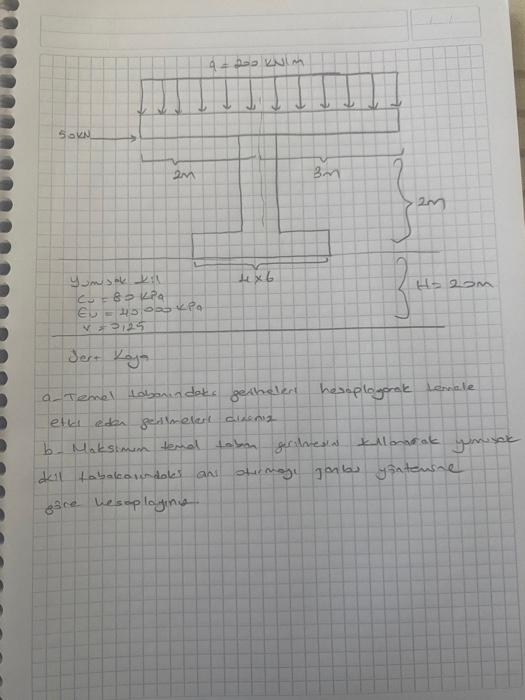 q = 200 kN/m
50kN
2m
3m
2m
4x6
Yumuşak kil
Cu = 80 kPa
Eu = 40,000 kPa
v = 0,25
H = 20m
Sert Kaya
a- Temel tabanındaki gerilmeleri hesaplayarak temele
etki eden gerilmeleri çiziniz
b- Maksimum temel taban gerilmesini kullanarak yumuşak
kil tabakasındaki ani oturmayı janbu yöntemine
göre hesaplayınız.